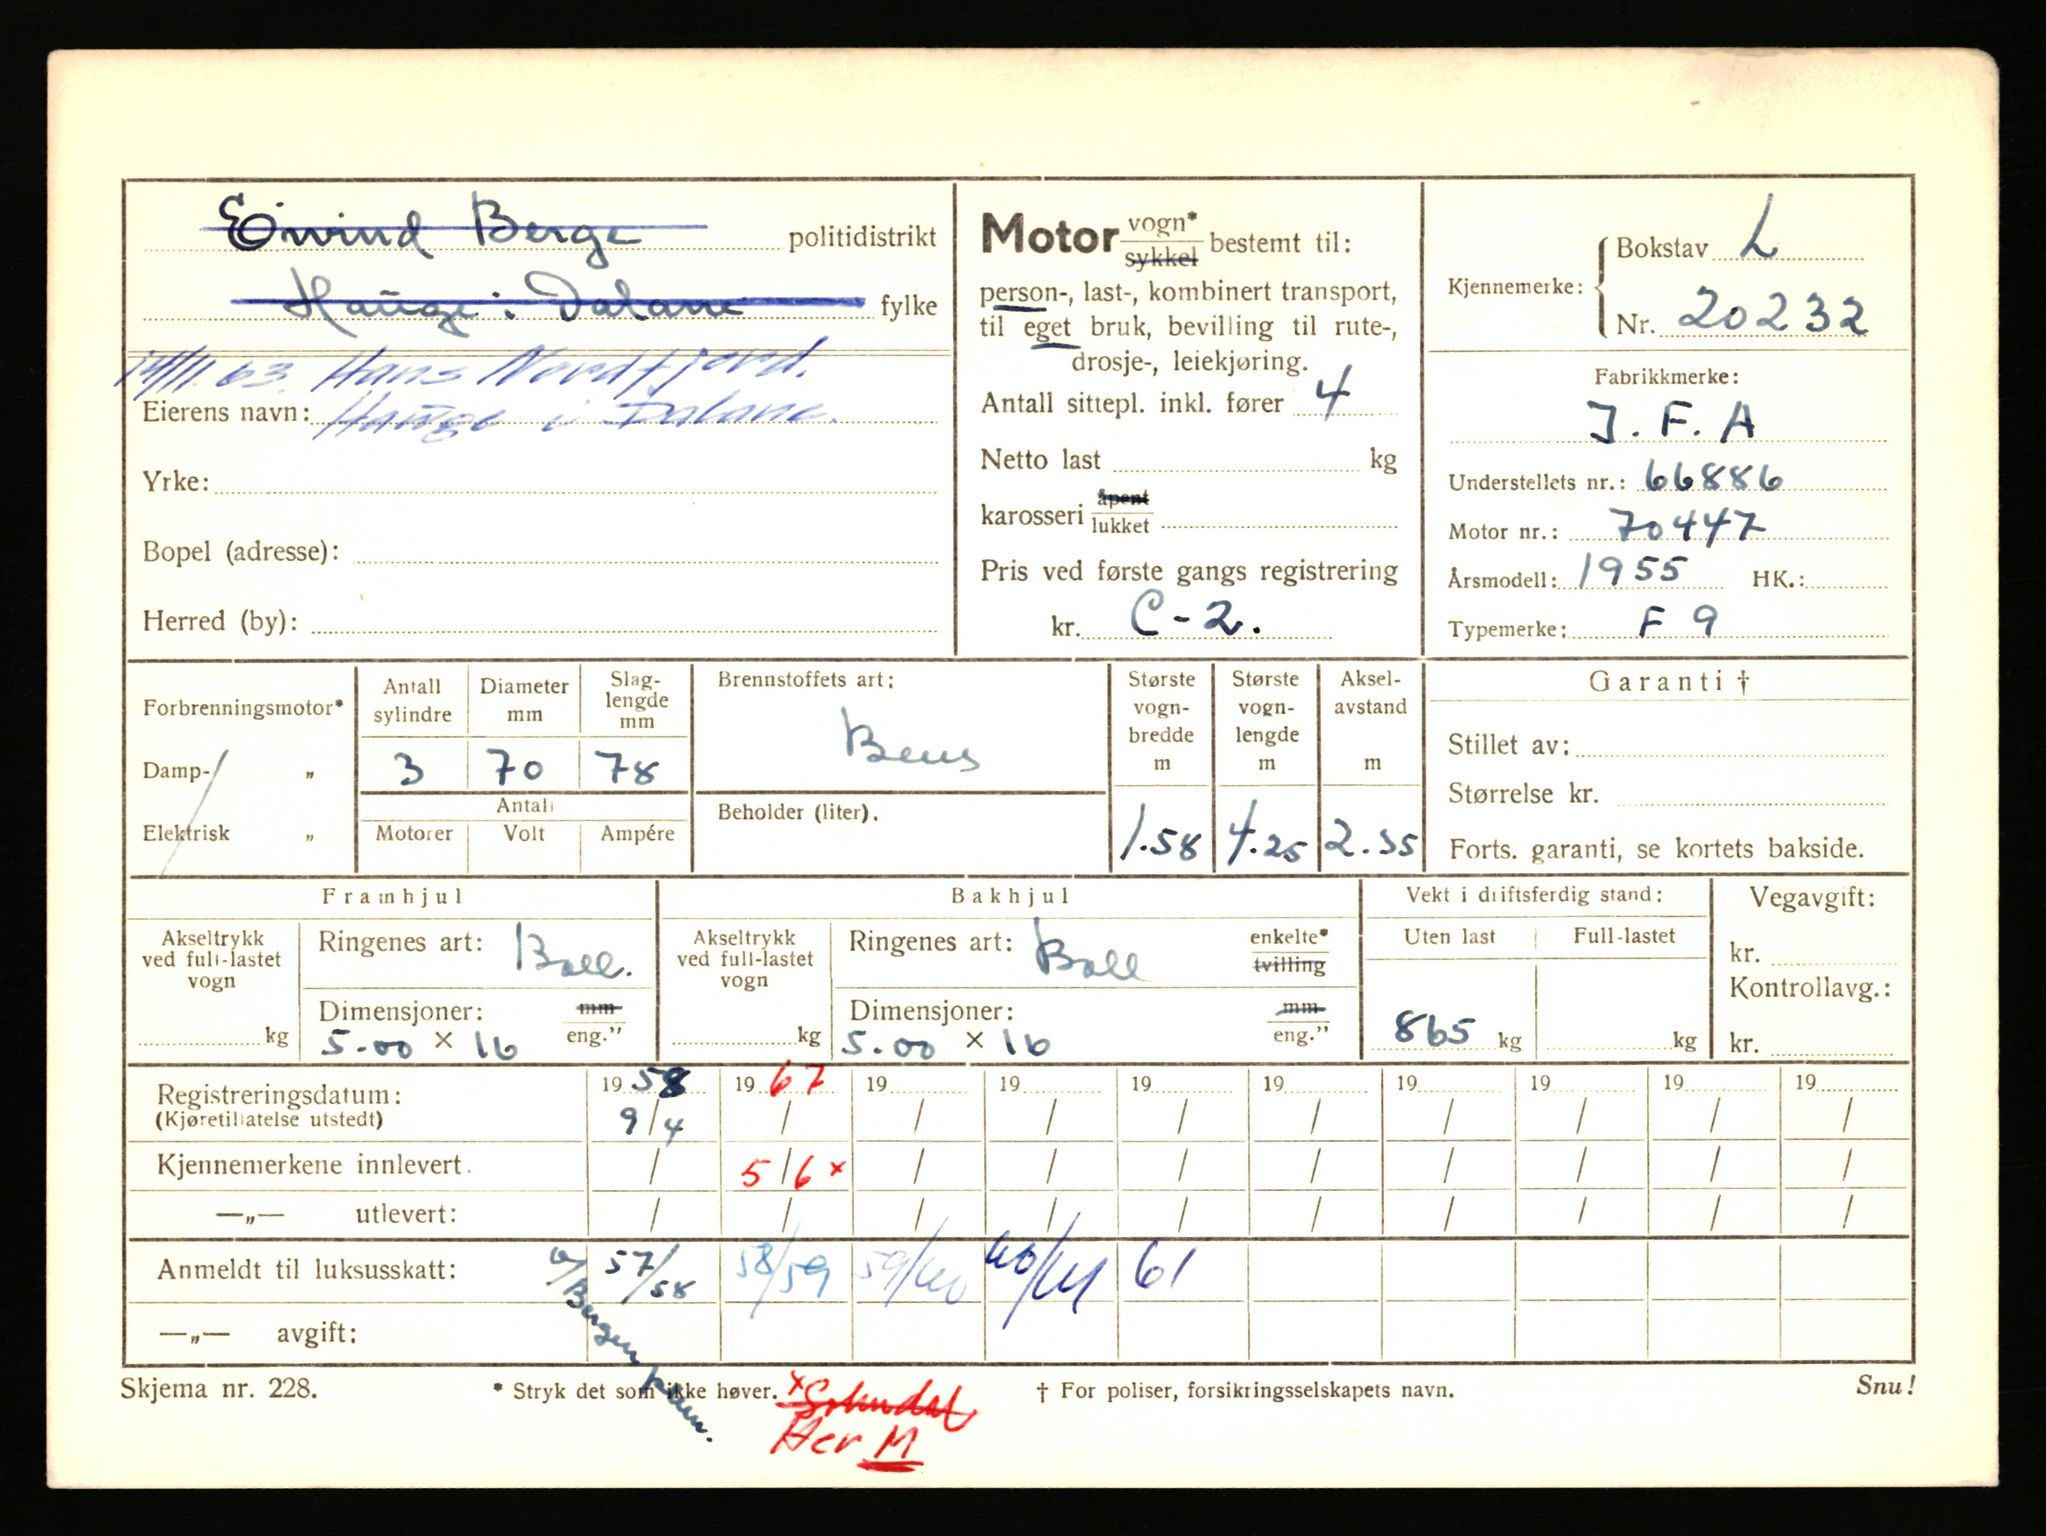 Eivind Berge politidistrikt
Hauge i Dalane fylke
14/11.63. Hans Nordfjord.
Eierens navn: Hauge i Dalane.
Yrke:
Bopel (adresse):
Herred (by):
Motor vogn* sykkel bestemt til:
person-, last-, kombinert transport,
til eget bruk, bevilling til rute-,
drosje-, leiekjøring.
Antall sittepl. inkl. fører 4
Netto last kg
karosseri åpent lukket
Pris ved første gangs registrering
kr. C-2.
Kjennemerke: Bokstav L
Nr. 20232
Fabrikkmerke:
I.F.A
Understellets nr.: 66886
Motor nr.: 70447
Årsmodell: 1955 HK.:
Typemerke: F 9
Forbrenningsmotor*
Damp- „
Elektrisk „
Antall sylindre 3
Diameter mm 70
Slaglengde mm 78
Antall
Motorer Volt Ampére
Brennstoffets art: Bens
Beholder (liter).
Største vognbredde m 1.58
Største vognlengde m 4.25
Akselavstand m 2.35
Garanti †
Stillet av:
Størrelse kr.
Forts. garanti, se kortets bakside.
Framhjul
Akseltrykk ved full-lastet vogn kg
Ringenes art: Ball.
Dimensjoner: mm eng.”
5.00 × 16
Bakhjul
Akseltrykk ved full-lastet vogn kg
Ringenes art: Ball enkelte* tvilling
Dimensjoner: mm eng.”
5.00 × 16
Vekt i driftsferdig stand:
Uten last 865 kg
Full-lastet kg
Vegavgift:
kr.
Kontrollavg.:
kr.
Registreringsdatum: 1958 1967 19 19 19 19 19 19 19 19
(Kjøretillatelse utstedt) 9/4 / / / / / / / / /
Kjennemerkene innlevert. / 5/6 × / / / / / / / /
—„— utlevert: / / / / / / / / / /
Anmeldt til luksusskatt: 57/58 58/59 59/60 60/61 61
—„— avgift:
v/Bergen kom.
Skjema nr. 228.
* Stryk det som ikke høver.
† For poliser, forsikringsselskapets navn.
Snu!
× Sokndal
Her M